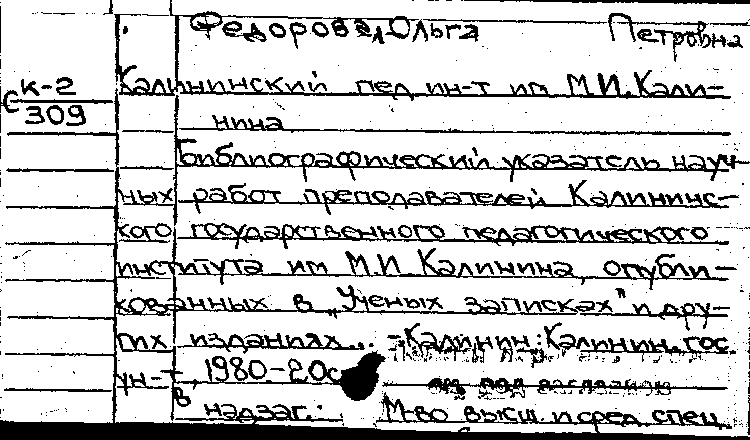 Федорова, Ольга Петровна
К-2
С 309
Калининский пед ин-т им М.И. Кали-
нина
Библиографический указатель науч-
ных работ преподавателей Калининс-
кого государственного педагогического
института им М.И Калинина, опубли-
кованных в „Ученых записках" и дру-
гих изданиях.. - Калинин: Калинин. гос
ун-т, 1980-20с
в надзаг.: М-во высш. и сред. спец.